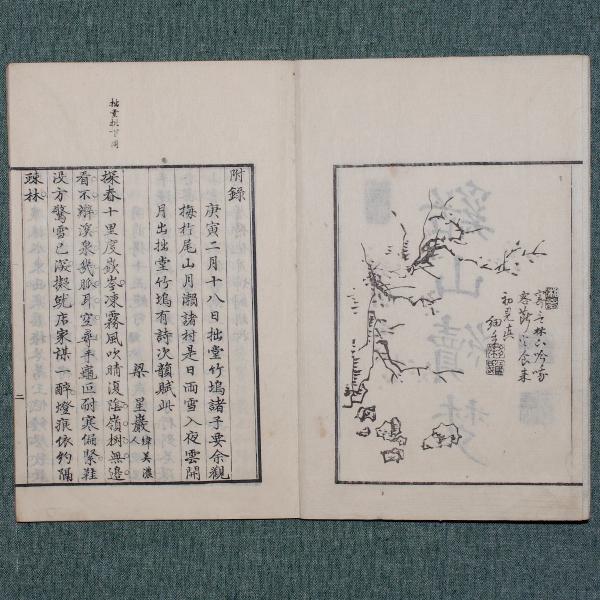 寥落
初見真
細香
附錄
庚寅二月十八日拙堂竹塢諸子要余觀
梅於尾山月瀨諸村是日雨雪入夜雲開
月出拙堂竹塢有詩次韻賦此
梁星巖 緯美濃人
探春十里度嶔岑凍霧風吹晴復陰嶺樹無邊
看不辨溪泉幾脈耳空尋手龜叵耐寒偏緊鞋
沒方驚雪已深擬就店家謀一醉燈痕依約隔
疎林
二